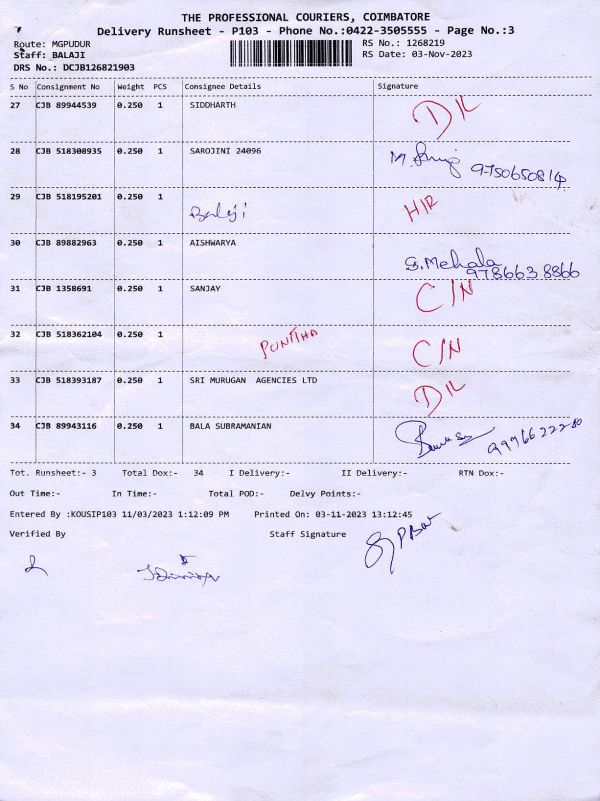 THE PROFESSIONAL COURIERS, COIMBATORE
Delivery Runsheet - P103 - Phone No.:0422-3505555 - Page No.:3
Route: MGPUDUR RS No.: 1268219
Staff: BALAJI RS Date: 03-Nov-2023
DRS No.: DCJB126821903
S No Consignment No Weight PCS Consignee Details Signature
27 CJB 89944539 0.250 1 SIDDHARTH D/L
28 CJB 518308935 0.250 1 SAROJINI 24096 M.
9750650814
29 CJB 518195201 0.250 1 Balaji H/R
30 CJB 89882963 0.250 1 AISHWARYA
S.Mehala
9786638866
31 CJB 1358691 0.250 1 SANJAY C/N
32 CJB 518362104 0.250 1 PUNITHA C/N
33 CJB 518393187 0.250 1 SRI MURUGAN AGENCIES LTD D/L
34 CJB 89943116 0.250 1 BALA SUBRAMANIAN
Tot. Runsheet:- 3 Total Dox:- 34 I Delivery:- II Delivery:- RTN Dox:-
Out Time:- In Time:- Total POD:- Delvy Points:-
Entered By :KOUSIP103 11/03/2023 1:12:09 PM Printed On: 03-11-2023 13:12:45
Verified By Staff Signature